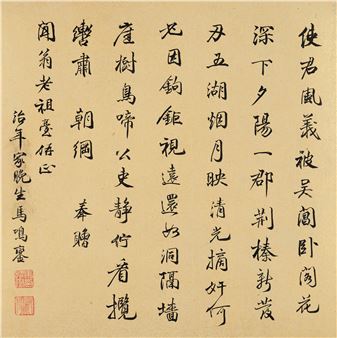 使君風義被吳閶臥閣花
深下夕陽一郡荆榛新發
刃五湖烟月映清光摘奸何
必因鉤鉅視遠還如洞隔墻
庭樹鳥啼公吏靜佇看攬
轡肅 朝綱 奉贈
聞翁老祖臺 正
治年家晚生馬鳴鑾